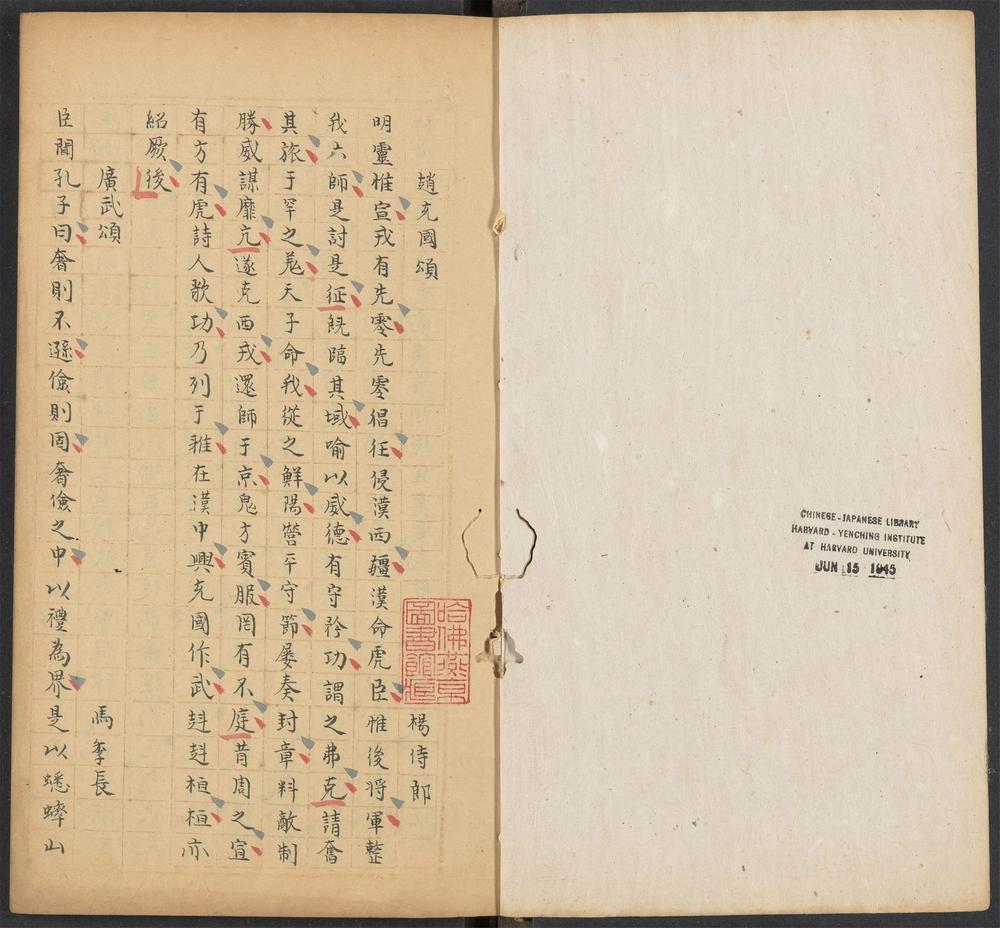 CHINESE-JAPANESE LIBRARY
HARVARD-YENCHING INSTITUTE
AT HARVARD UNIVERSITY
JUN 15 1945
趙充國頌 楊侍郎
哈佛燕京
圖書館
明靈惟宣戎有先零先零猖狂侵漢西疆漢命虎臣惟後將軍整
我六師是討是征既臨其域喻以威德有守矜功謂之弗克請奮
其旅于罕之羌天子命我從之鮮陽營平守節屢奏封章料敵制
勝威謀靡亢遂克西戎還師于京鬼方賓服罔有不庭昔周之宣
有方有虎詩人歌功乃列于雅在漢中興充國作武赳赳桓桓亦
紹厥後
廣武頌 馬季長
臣聞孔子曰奢則不遜儉則固奢儉之中以禮為界是以蟋蟀山